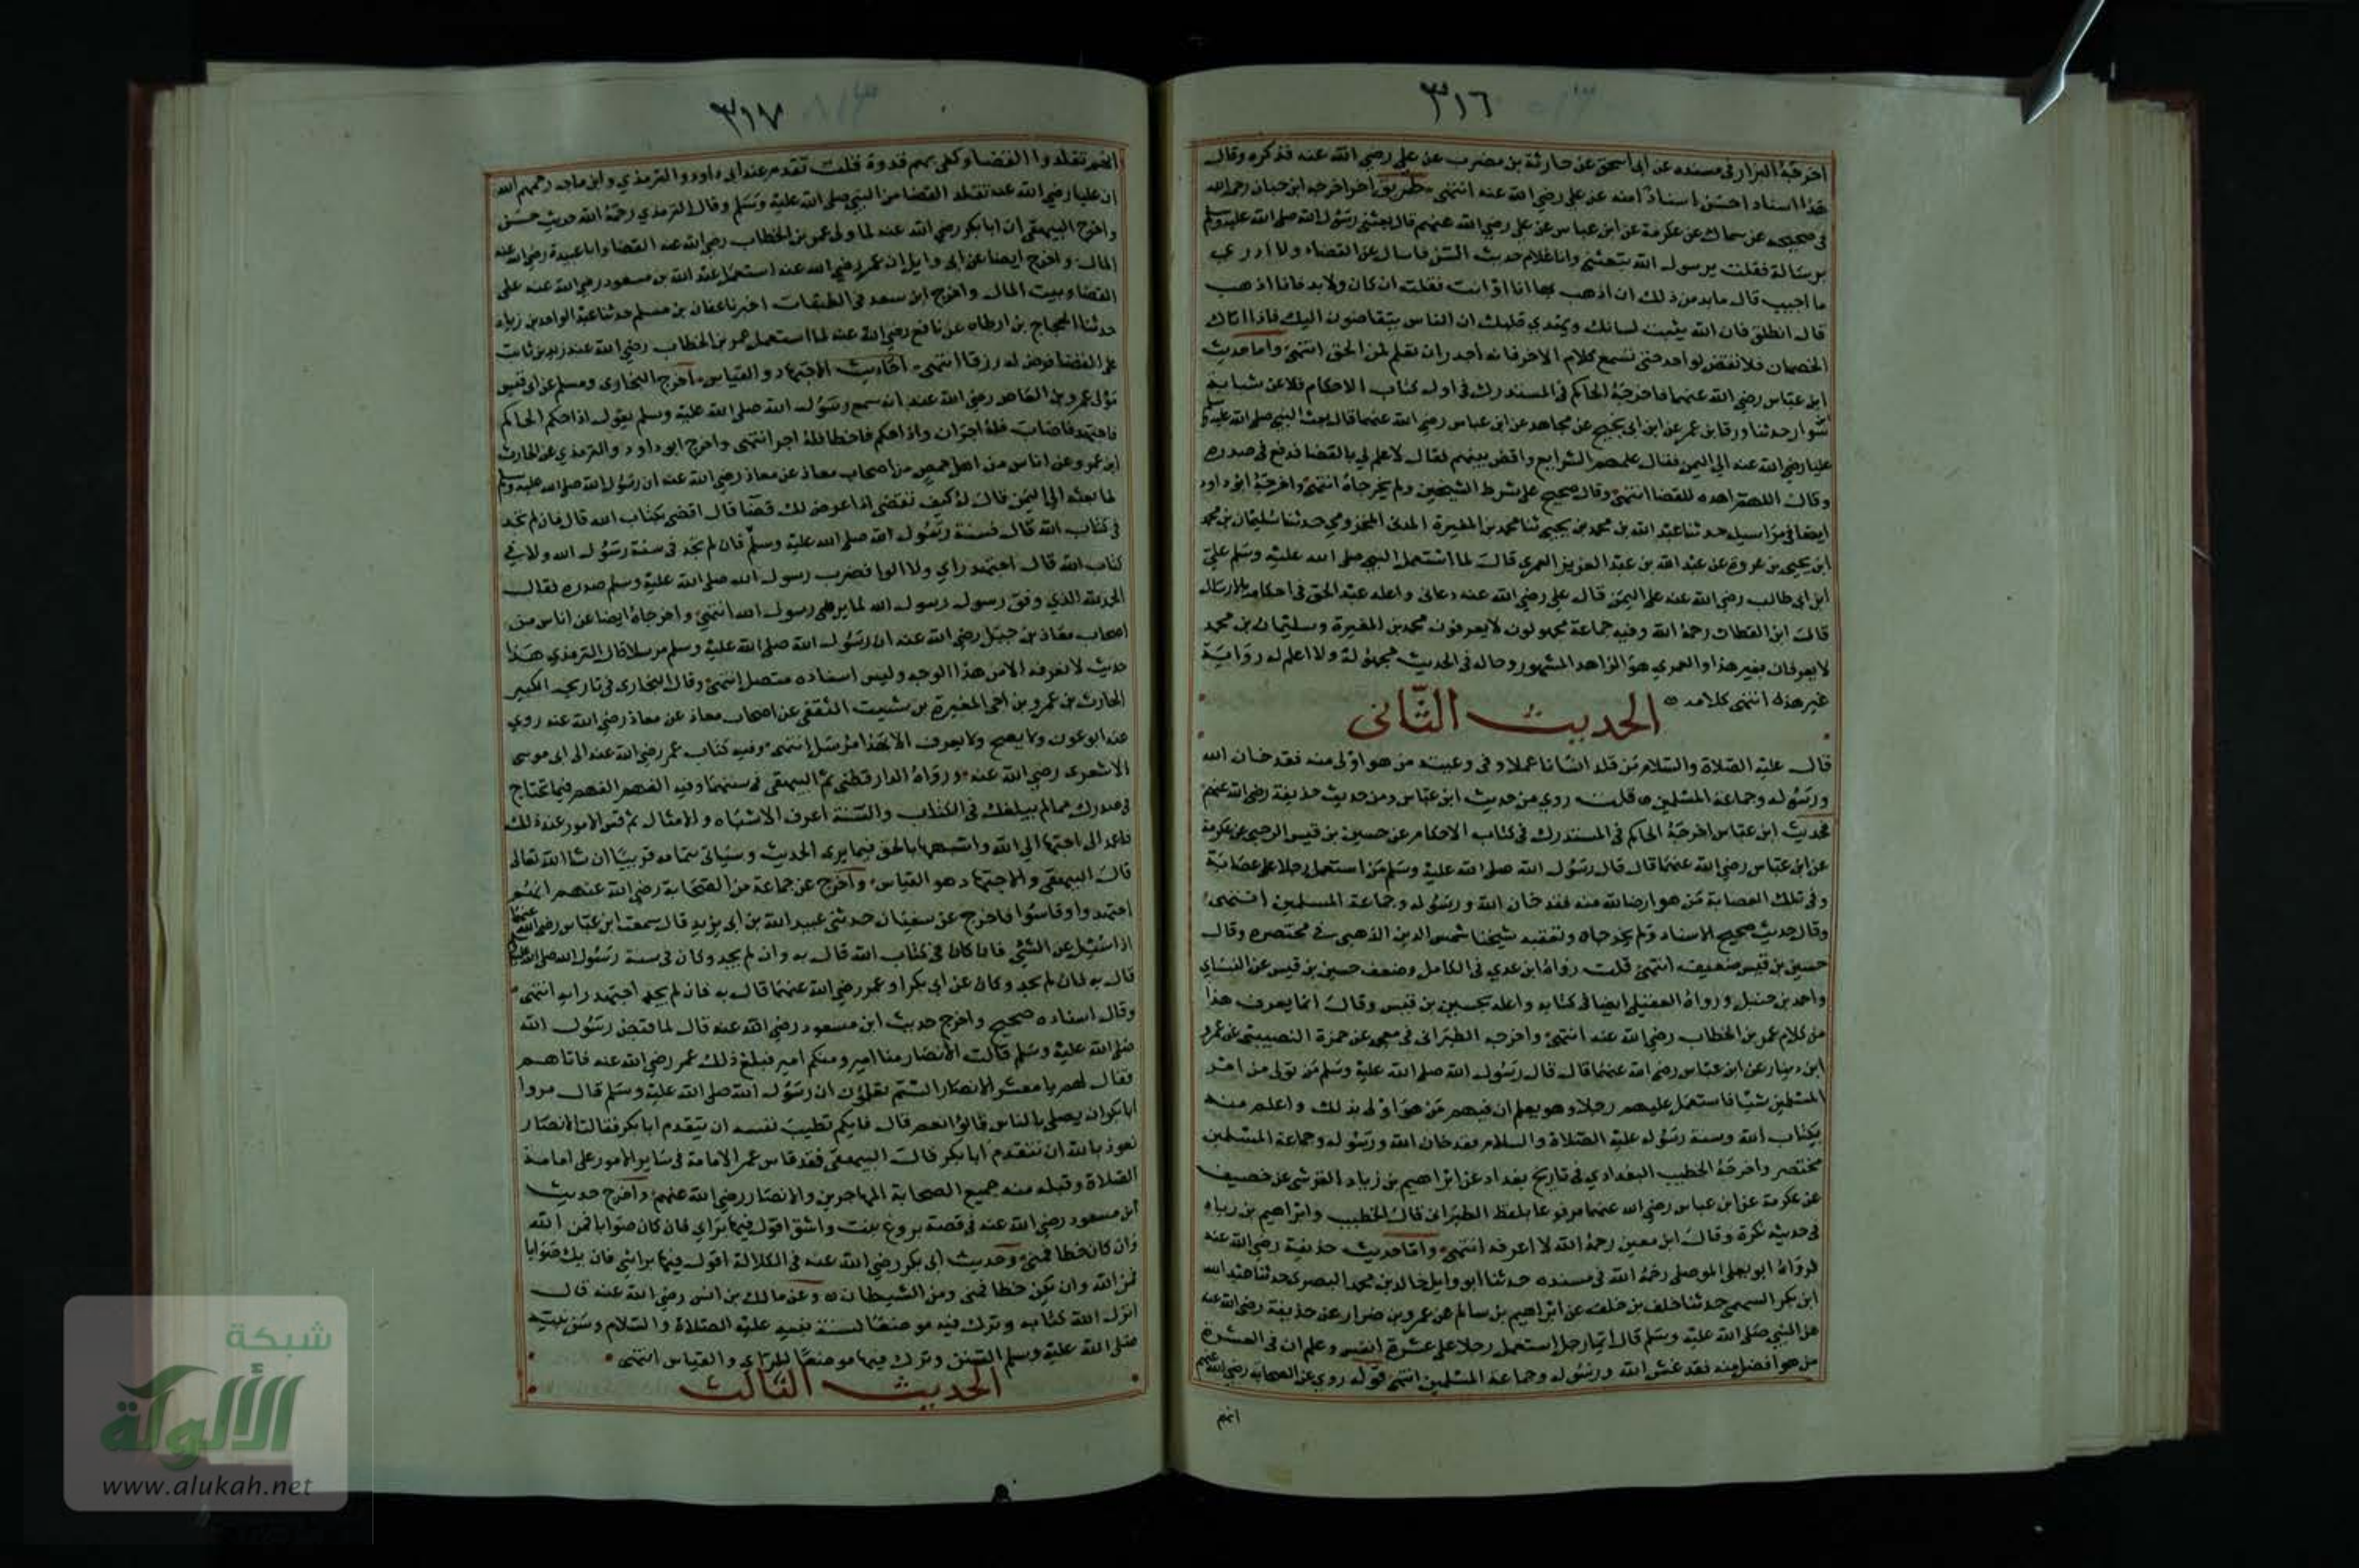 ٣١٦
اخرجه البزار في مسنده عن ابي اسحق عن حارثة بن مضرب عن علي رضي الله عنه فذكره وقال
هذا اسناد احسن اسناد منه عن علي رضي الله عنه انتهى طريق اخر اخرجه ابن حبان رحمه الله
في صحيحه عن سماك عن عكرمة عن ابن عباس عن علي رضي الله عنهم قال بعثني رسول الله صلى الله عليه وسلم
برسالة فقلت يرسول الله تبعثني وانا غلام حديث السن فاسال عن القضاء ولا ادري
ما اجيب قال مابد من ذلك ان اذهب بها انا او انت فقلت ان كان ولابد فانا اذهب
قال انطلق فان الله يثبت لسانك ويهدي قلبك ان الناس يتقاضون اليك فاذا اتاك
الخصمان فلا تقض لواحد حتى تسمع كلام الاخر فانه اجدر ان تعلم لمن الحق انتهى واما حديث
ابن عباس رضي الله عنهما فاخرجه الحاكم في المستدرك في اول كتاب الاحكام عن شبابة
سوار حدثنا ورقا بن عمر عن ابن ابي نجيح عن مجاهد عن ابن عباس رضي الله عنهما قال بعث النبي صلى الله عليه وسلم
عليا رضي الله عنه الي اليمن فقال علمهم الشرايع واقض بينهم فقال لا علم لي بالقضا فدفع في صدره
وقال اللهم اهده للقضا انتهى وقال صحيح على شرط الشيخين ولم يخرجاه انتهى واخرجه ابو داود
ايضا في مراسيله حدثنا عبد الله بن محمد بن يحيى ثنا محمد بن المغيرة المدني المخزومي حدثنا سليمان بن محمد
ابن يحيى بن عروة عن عبد الله بن عبد العزيز العمري قال لما استعمل النبي صلى الله عليه وسلم علي
ابن ابي طالب رضي الله عنه على اليمن قال علي رضي الله عنه دعاني واعله عبد الحق في احكامه بالارسال
قال ابن القطان رحمه الله وفيه جماعة مجهولون لا يعرفون محمد بن المغيرة وسليمان بن محمد
لا يعرفان بغير هذا والعمري هو الزاهد المشهور وحاله في الحديث مجهولة ولا اعلم له رواية
غير هذه انتهى كلامه
الحديث الثاني
قال عليه الصلاة والسلام من قلد انسانا عملا وفي رعيته من هو اولى منه فقد خان الله
ورسوله وجماعة المسلمين قلت روي من حديث ابن عباس ومن حديث حذيفة رضي الله عنهم
فحديث ابن عباس اخرجه الحاكم في المستدرك في كتاب الاحكام عن حسين بن قيس الرحبي عن عكرمة
عن ابن عباس رضي الله عنهما قال قال رسول الله صلى الله عليه وسلم من استعمل رجلا على عصابة
وفي تلك العصابة من هو ارضا لله منه فقد خان الله ورسوله وجماعة المسلمين انتهى
وقال حديث صحيح الاسناد ولم يخرجاه وتعقبه شيخنا شمس الدين الذهبي في مختصره وقال
حسين بن قيس ضعيف انتهى قلت رواه ابن عدي في الكامل وضعف حسين بن قيس عن النساي
واحمد بن حنبل ورواه العقيلي ايضا في كتابه واعله بحسين بن قيس وقال انما يعرف هذا
من كلام عمر بن الخطاب رضي الله عنه انتهى واخرجه الطبراني في معجمه عن حمزة النصيبي عن عمرو
ابن دينار عن ابن عباس رضي الله عنهما قال قال رسول الله صلى الله عليه وسلم من تولى من امر
المسلمين شيئا فاستعمل عليهم رجلا وهو يعلم ان فيهم من هو اولى بذلك واعلم منه
بكتاب الله وسنة رسوله عليه الصلاة والسلام فقد خان الله ورسوله وجماعة المسلمين
مختصر واخرجه الخطيب البغدادي في تاريخ بغداد عن ابراهيم بن زياد القرشي عن خصيف
عن عكرمة عن ابن عباس رضي الله عنهما مرفوعا بلفظ الطبراني قال الخطيب وابراهيم بن زياد
في حديثه نكرة وقال ابن معين رحمه الله لا اعرفه انتهى واما حديث حذيفة رضي الله عنه
فرواه ابو يعلى الموصلي رحمه الله في مسنده حدثنا ابو وايل خالد بن محمد البصري حدثنا عبد الله
ابن بكر السهمي حدثنا خلف بن خلف عن ابراهيم بن سالم عن عمرو بن ضرار عن حذيفة رضي الله عنه
عن النبي صلى الله عليه وسلم قال ايما رجل استعمل رجلا على عشرة انفس وعلم ان في العشرة
من هو افضل منه فقد غش الله ورسوله وجماعة المسلمين انتهى قوله روي عن الصحابة رضي الله عنهم
انهم
٣١٧
انهم تقلدوا القضا وكفى بهم قدوة قلت تقدم عند ابي داود والترمذي وابن ماجه رحمهم الله
ان عليا رضي الله عنه تقلد القضا من النبي صلى الله عليه وسلم وقال الترمذي رحمه الله حديث حسن
واخرج البيهقي ان ابا بكر رضي الله عنه لما ولى عمر بن الخطاب رضي الله عنه القضا وابا عبيدة رضي الله عنه
المال واخرج ايضا عن ابي وايل ان عمر رضي الله عنه استعمل عبد الله بن مسعود رضي الله عنه على
القضا وبيت المال واخرج ابن سعد في الطبقات اخبرنا عفان بن مسلم حدثنا عبد الواحد بن زياد
حدثنا الحجاج بن ارطاه عن نافع رضي الله عنه لما استعمل عمر بن الخطاب رضي الله عنه زيد بن ثابت
على القضا فرض له رزقا انتهى احاديث الاجتهاد والقياس اخرج البخاري ومسلم عن ابي قيس
مولى عمرو بن العاص رضي الله عنه انه سمع رسول الله صلى الله عليه وسلم يقول اذا حكم الحاكم
فاجتهد فاصاب فله اجران واذا حكم فاخطا فله اجر انتهى واخرج ابو داود والترمذي عن الحارث
ابن عمرو عن اناس من اهل حمص من اصحاب معاذ عن معاذ رضي الله عنه ان رسول الله صلى الله عليه وسلم
لما بعثه الي اليمن قال له كيف تقضي اذا عرض لك قضا قال اقضي بكتاب الله قال فان لم تجد
في كتاب الله قال فسنة رسول الله صلى الله عليه وسلم فان لم تجد في سنة رسول الله ولا في
كتاب الله قال اجتهد راي ولا الوا فضرب رسول الله صلى الله عليه وسلم صدره فقال
الحمد لله الذي وفق رسول رسول الله لما يرضى رسول الله انتهى واخرجاه ايضا عن اناس من
اصحاب معاذ بن جبل رضي الله عنه ان رسول الله صلى الله عليه وسلم مرسلا قال الترمذي هذا
حديث لا نعرفه الا من هذا الوجه وليس اسناده متصل انتهى وقال البخاري في تاريخه الكبير
الحارث بن عمرو بن اخي المغيرة بن شيبت الثقفي عن اصحاب معاذ عن معاذ رضي الله عنه روي
عنه ابو عون ولا يصح ولا يعرف الا بهذا مرسل انتهى وفيه كتاب عمر رضي الله عنه الى ابي موسى
الاشعري رضي الله عنه ورواه الدارقطني ثم البيهقي في سننهما وفيه الفهم الفهم فيما تحتاج
في صدرك مما لم يبلغك في الكتاب والسنة اعرف الاشباه والامثال ثم قس الامور عند ذلك
فاعمد الى احبها الي الله واشبهها بالحق فيما يرى الحديث وسياتي بتمامه قريبا ان شا الله تعالى
قال البيهقي والاجتهاد هو القياس واخرج عن جماعة من الصحابة رضي الله عنهم انهم
اجتهدوا وقاسوا فاخرج عن سفيان حدثني عبيد الله بن ابي يزيد قال سمعت ابن عباس رضي الله عنهما
اذا سئيل عن الشي فان كان في كتاب الله قال به وان لم يجد وكان في سنة رسول الله صلى الله عليه وسلم
قال به فان لم يجد وكان عن ابي بكر او عمر رضي الله عنهما قال به فان لم يجد اجتهد رايه انتهى
وقال اسناده صحيح واخرج حديث ابن مسعود رضي الله عنه قال لما قبض رسول الله
صلى الله عليه وسلم قالت الانصار منا امير ومنكم امير فبلغ ذلك عمر رضي الله عنه فاتاهم
فقال لهم يا معشر الانصار الستم تعلمون ان رسول الله صلى الله عليه وسلم قال مروا
ابا بكر ان يصلي بالناس قالوا نعم قال فايكم تطيب نفسه ان يتقدم ابا بكر فقالت الانصار
نعوذ بالله ان نتقدم ابا بكر قال البيهقي فقد قاس عمر الامامة في ساير الامور على امامة
الصلاة وقبله منه جميع الصحابة المهاجرين والانصار رضي الله عنهم واخرج حديث
ابن مسعود رضي الله عنه في قصة بروع بنت واشق اقول فيها براي فان كان صوابا فمن الله
وان كان خطا فمني وحديث ابي بكر رضي الله عنه في الكلالة اقول فيها برائي فان يك صوابا
فمن الله وان يكن خطا فمني ومن الشيطان وعن مالك بن انس رضي الله عنه قال
انزل الله كتابه وترك فيه موضعا لسنة نبيه عليه الصلاة والسلام وسن نبيه
صلى الله عليه وسلم السنن وترك فيها موضعا للراي والقياس انتهى
الحديث الثالث
شبكة
الألوكة
www.alukah.net